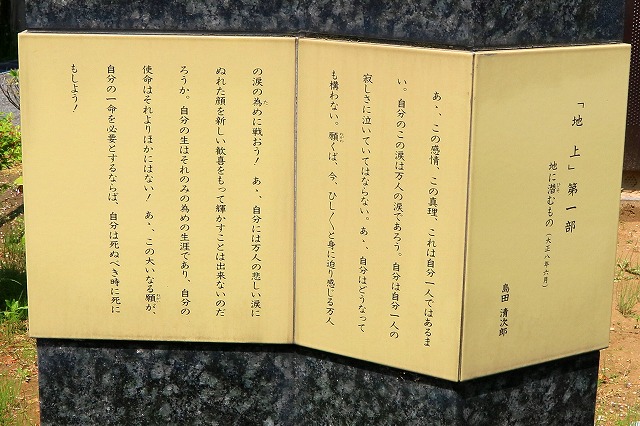 「地上」第一部
地に潜むもの（大正八年六月）
島田 清次郎
あゝ、この感情、この真理、これは自分一人ではあるま
い。自分のこの涙は万人の涙であろう。自分は自分一人の
寂しさに泣いていてはならない。あゝ、自分はどうなって
も構わない。願くば、今、ひし〳〵と身に迫り感じる万人
の涙の為めに戦おう！ あゝ、自分には万人の悲しい涙に
ぬれた顔を新しい歓喜をもって輝かすことは出来ないのだ
ろうか。自分の生はそれのみの為めの生涯であり、自分の
使命はそれよりほかにはない！ あゝ、この大いなる願が、
自分の一命を必要とするならば、自分は死ぬべき時に死に
もしよう！